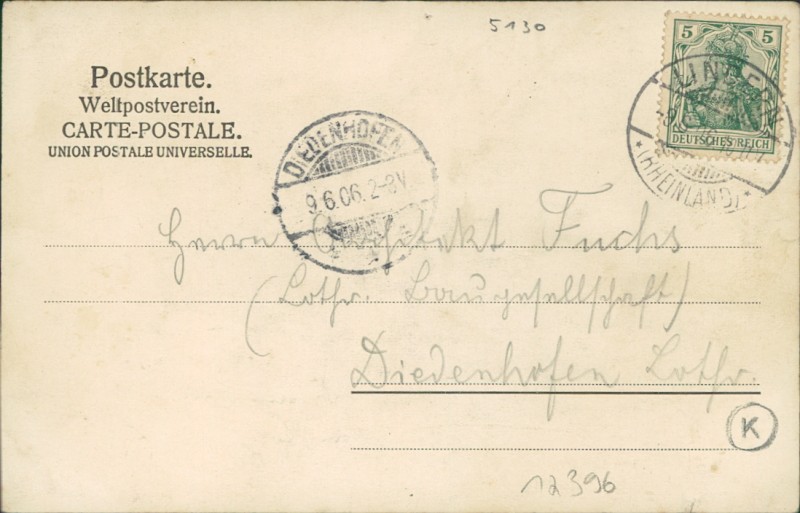 5130
Postkarte.
Weltpostverein.
CARTE-POSTALE.
UNION POSTALE UNIVERSELLE.
5 5
DEUTSCHES REICH
(RHEINLAND)
DIEDENHOFEN
9.6.06. 2-3V.
Herrn Architekt Fuchs
(Lothr. Baugesellschaft)
Diedenhofen Lothr.
K
12396